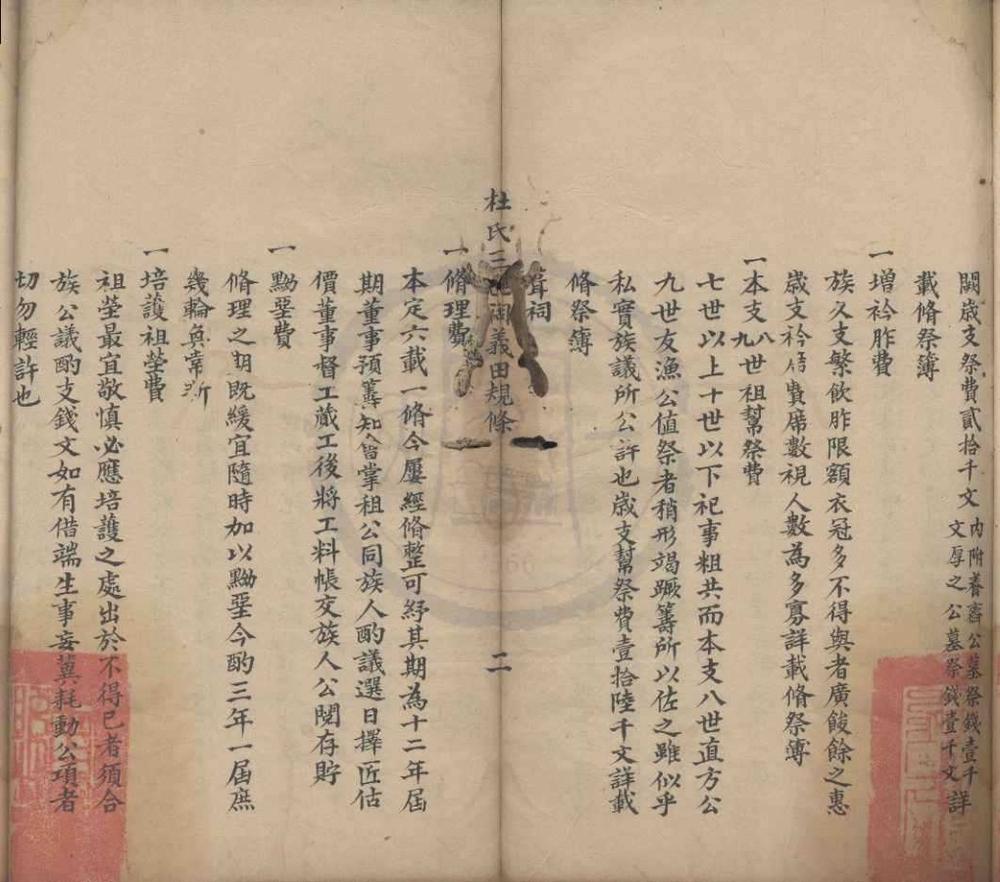 闕歲支祭費貳拾千文 內附養齋公墓祭錢壹千文厚之公墓祭錢壹千文詳
載脩祭簿
一增衿胙費
族久支繁飲胙限額衣冠多不得與者廣餕餘之惠
歲支衿胙費席數視人數為多寡詳載脩祭簿
一本支八九世祖幫祭費
七世以上十世以下祀事粗共而本支八世直方公
九世友漁公值祭者稍形竭蹶籌所以佐之雖似乎
私實族議所公許也歲支幫祭費壹拾陸千文詳載
脩祭簿
葺祠
杜氏三 祠義田規條
二
一脩理費
本定六載一脩今屢經脩整可紓其期為十二年屆
期董事預籌知會掌租公同族人酌議選日擇匠估
價董事督工蕆工後將工料帳交族人公閱存貯
一黝堊費
脩理之期既緩宜隨時加以黝堊今酌三年一屆庶
幾輪奐常新
一培護祖塋費
祖塋最宜敬慎必應培護之處出於不得已者須合
族公議酌支錢文如有借端生事妄冀耗動公項者
切勿輕許也